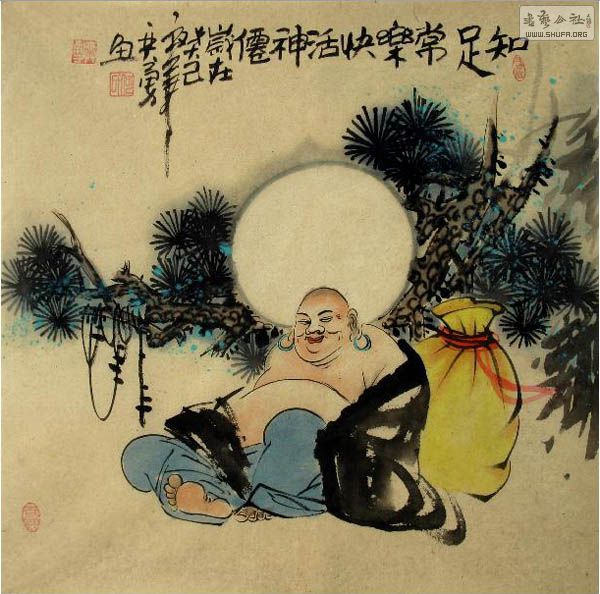 知足常樂快活神僊
歲在
癸巳
画
书藝公社
WWW.SHUFA.ORG